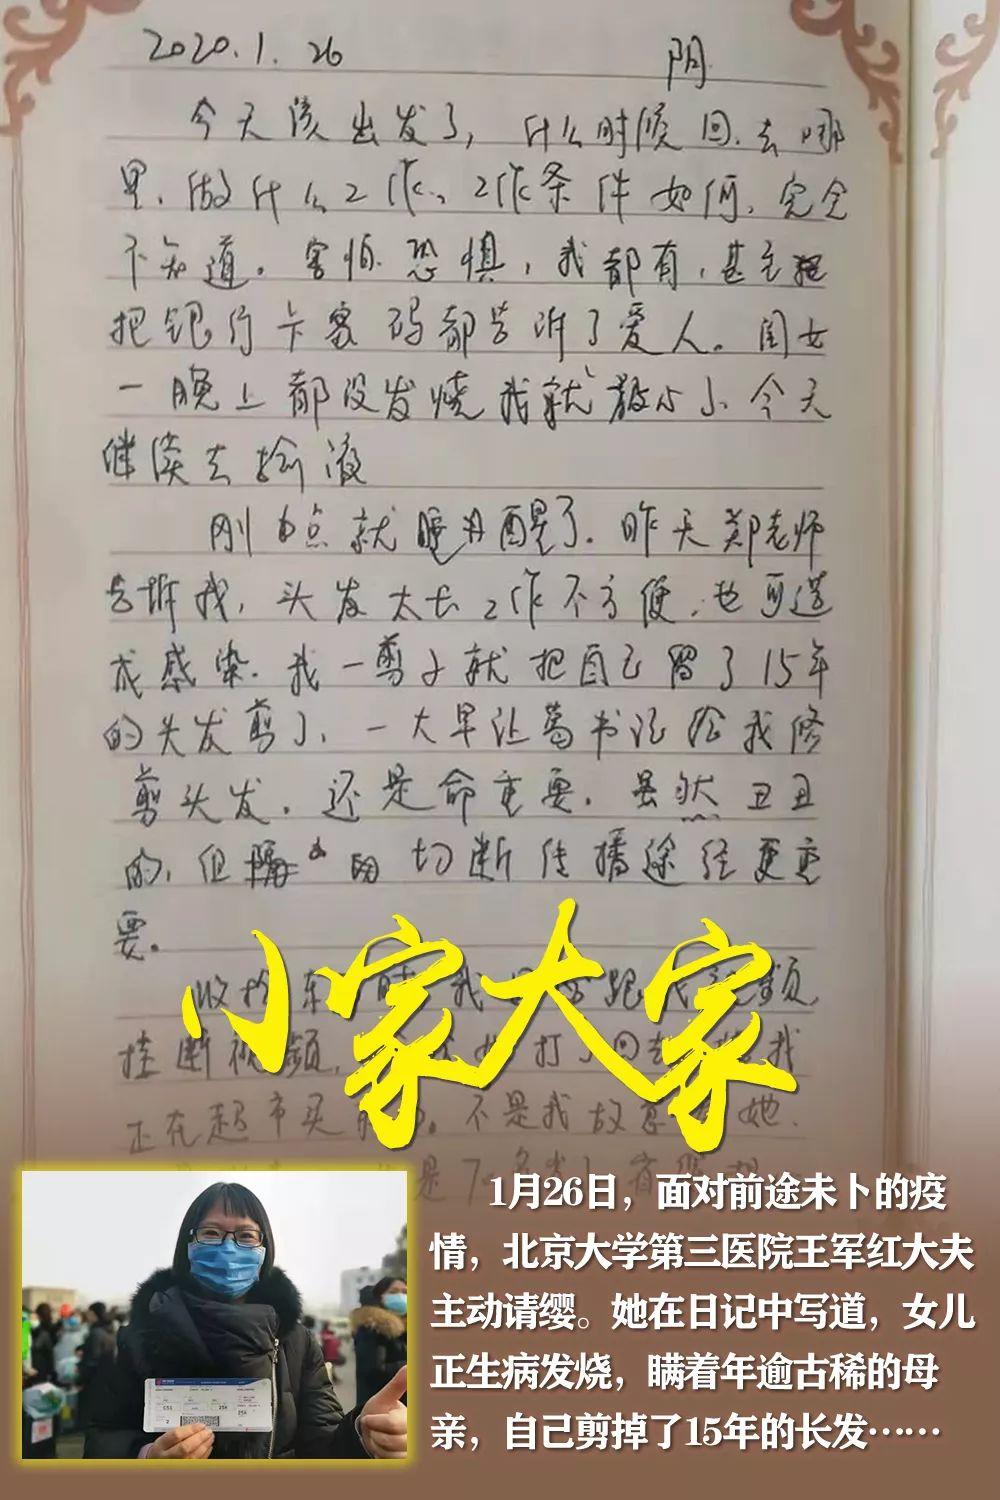 2020.1.26 阴
今天该出发了，什么时候回、去哪
里、做什么工作、工作条件如何，完全
不知道。害怕恐惧，我都有，甚至
把银行卡密码都告诉了爱人。闺女
一晚上都没发烧我就 今天
继续去输液
刚 点就 醒了。昨天郑老师
告诉我，头发太长工作不方便，也可造
成感染。我一剪子就把自己留了15年
的头发剪了，一大早让葛书记给我修
剪头发。还是命重要。虽然丑丑
的，但 切断传播途径更重
要。
收拾东 我 跟我视频
挂断视频， 打了回去 我
正在超市买 。不是我故意 她.
小家大家
1月26日，面对前途未卜的疫
情，北京大学第三医院王军红大夫
主动请缨。她在日记中写道，女儿
正生病发烧，瞒着年逾古稀的母
亲，自己剪掉了15年的长发……